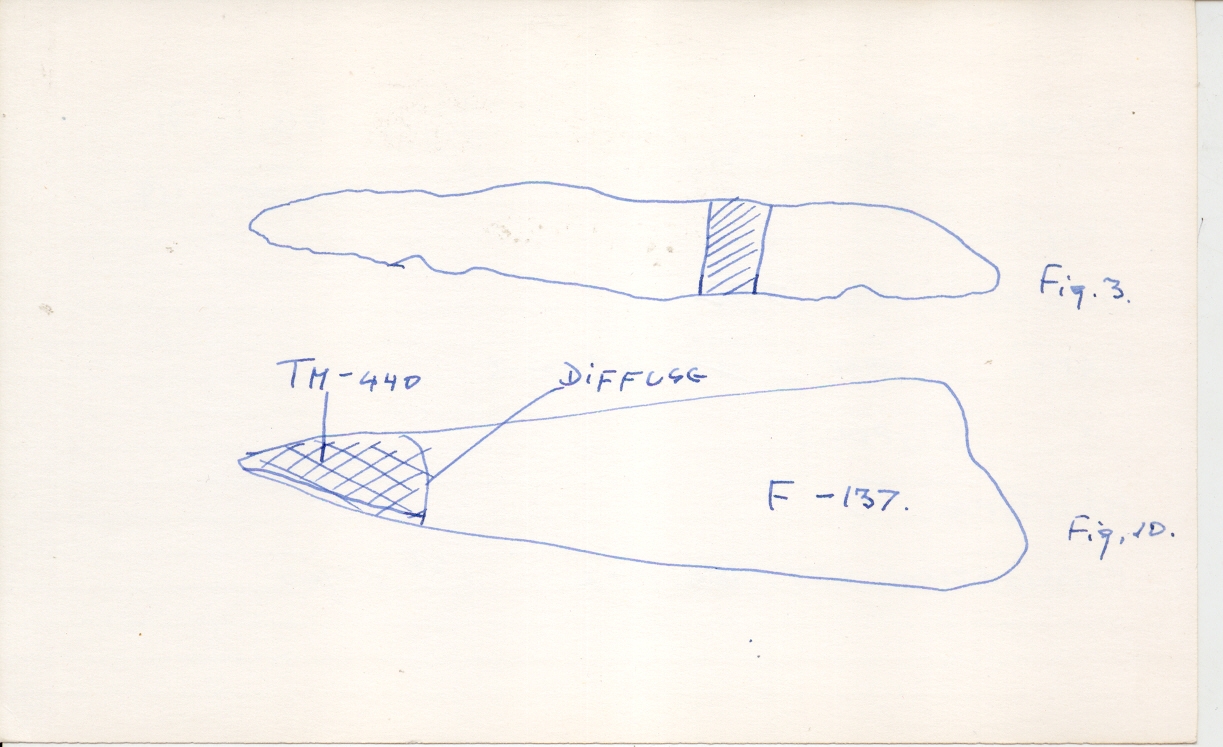 Fig. 3.
TM-440
DiFFUSE
F -137.
Fig. 10.